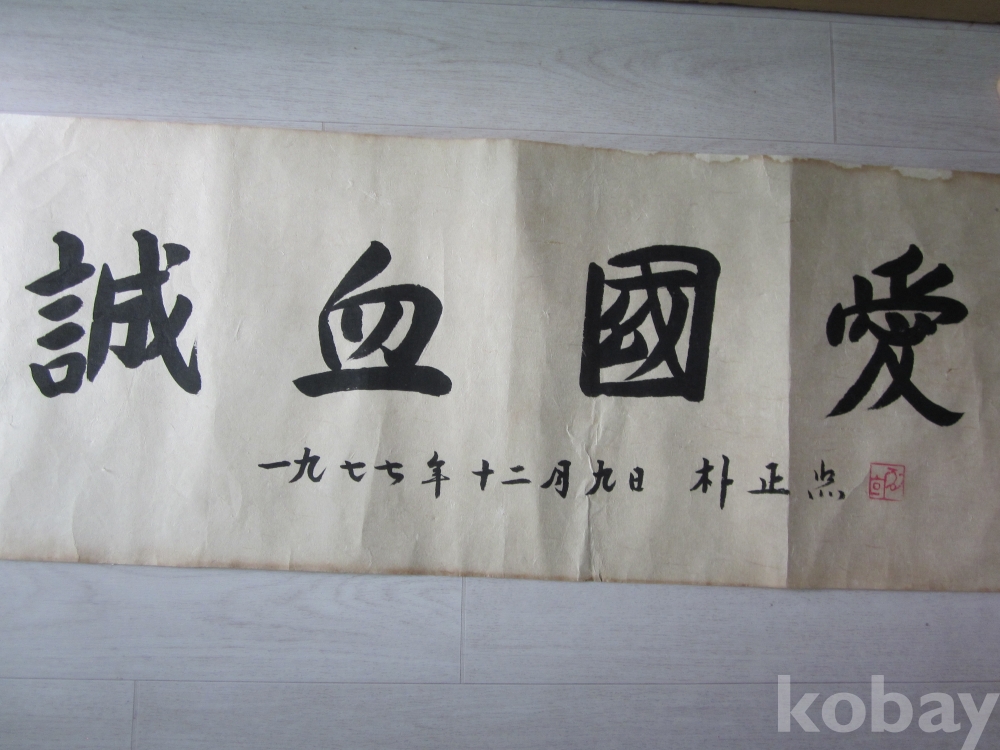 愛國血誠
一九七七年十二月九日 朴正熙
kobay